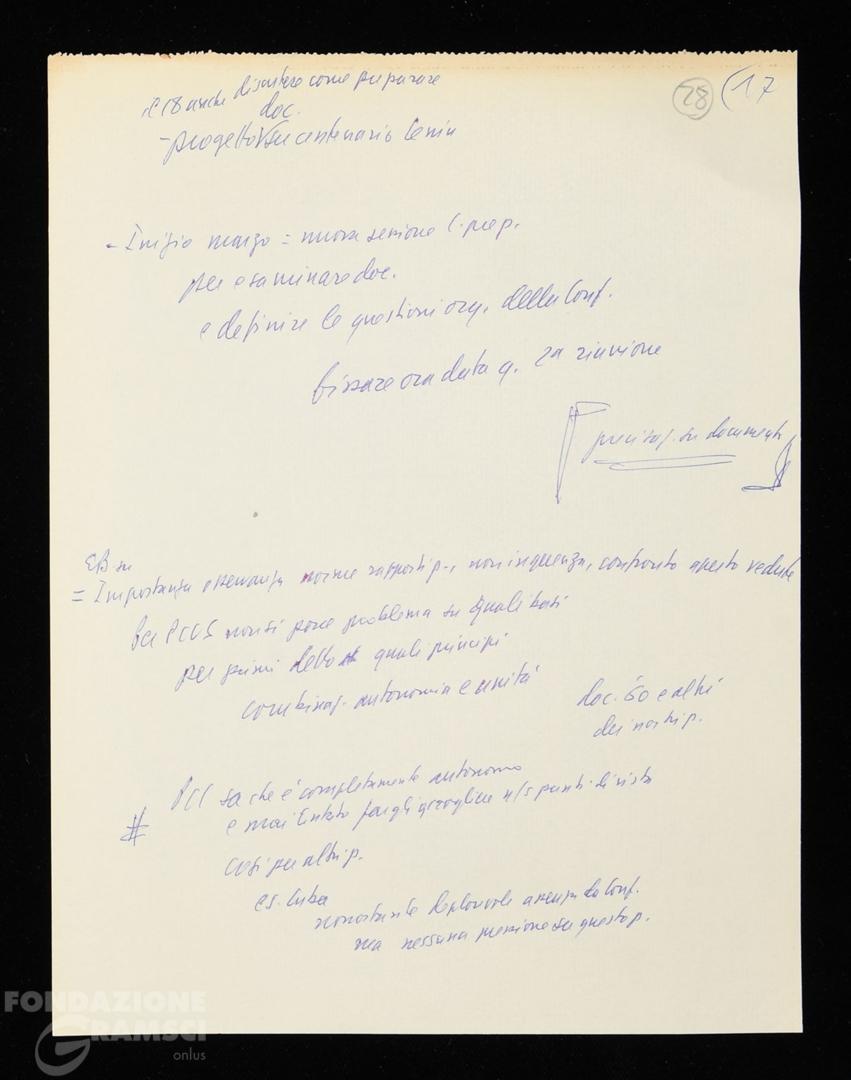 28 (17
il 18 anche discutere come preparare
doc.
- progetto su centenario Lenin
- Inizio marzo = nuova sessione C. prep.
per esaminare doc.
e definire le questioni org. della Conf.
fissare ora data q. 2a riunione
precisaz. su documenti
EB su
= Importanza osservanza norme rapporti p., non ingerenza, confronto aperto vedute
Per PCUS non si pone problema su quali basi
per primi detto quali principi
combinaz. autonomia e unità
doc. 60 e altri
dei nostri p.
# PCI sa che è completamente autonomo
e mai tentato fargli accogliere n/s punti di vista
Così per altri p.
es. Cuba
nonostante deplorevole assenza da Conf.
ma nessuna pressione su questo p.
FONDAZIONE
GRAMSCI
onlus